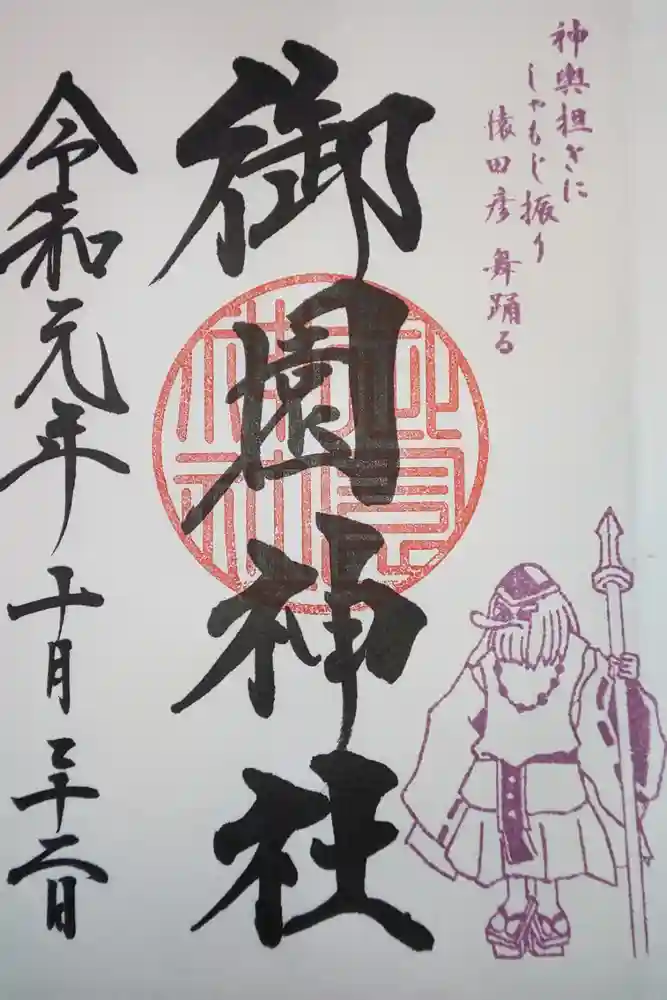 神輿担ぎに
しゃもじ振り
猿田彦 舞踊る
御園神社
令和元年十月二十二日